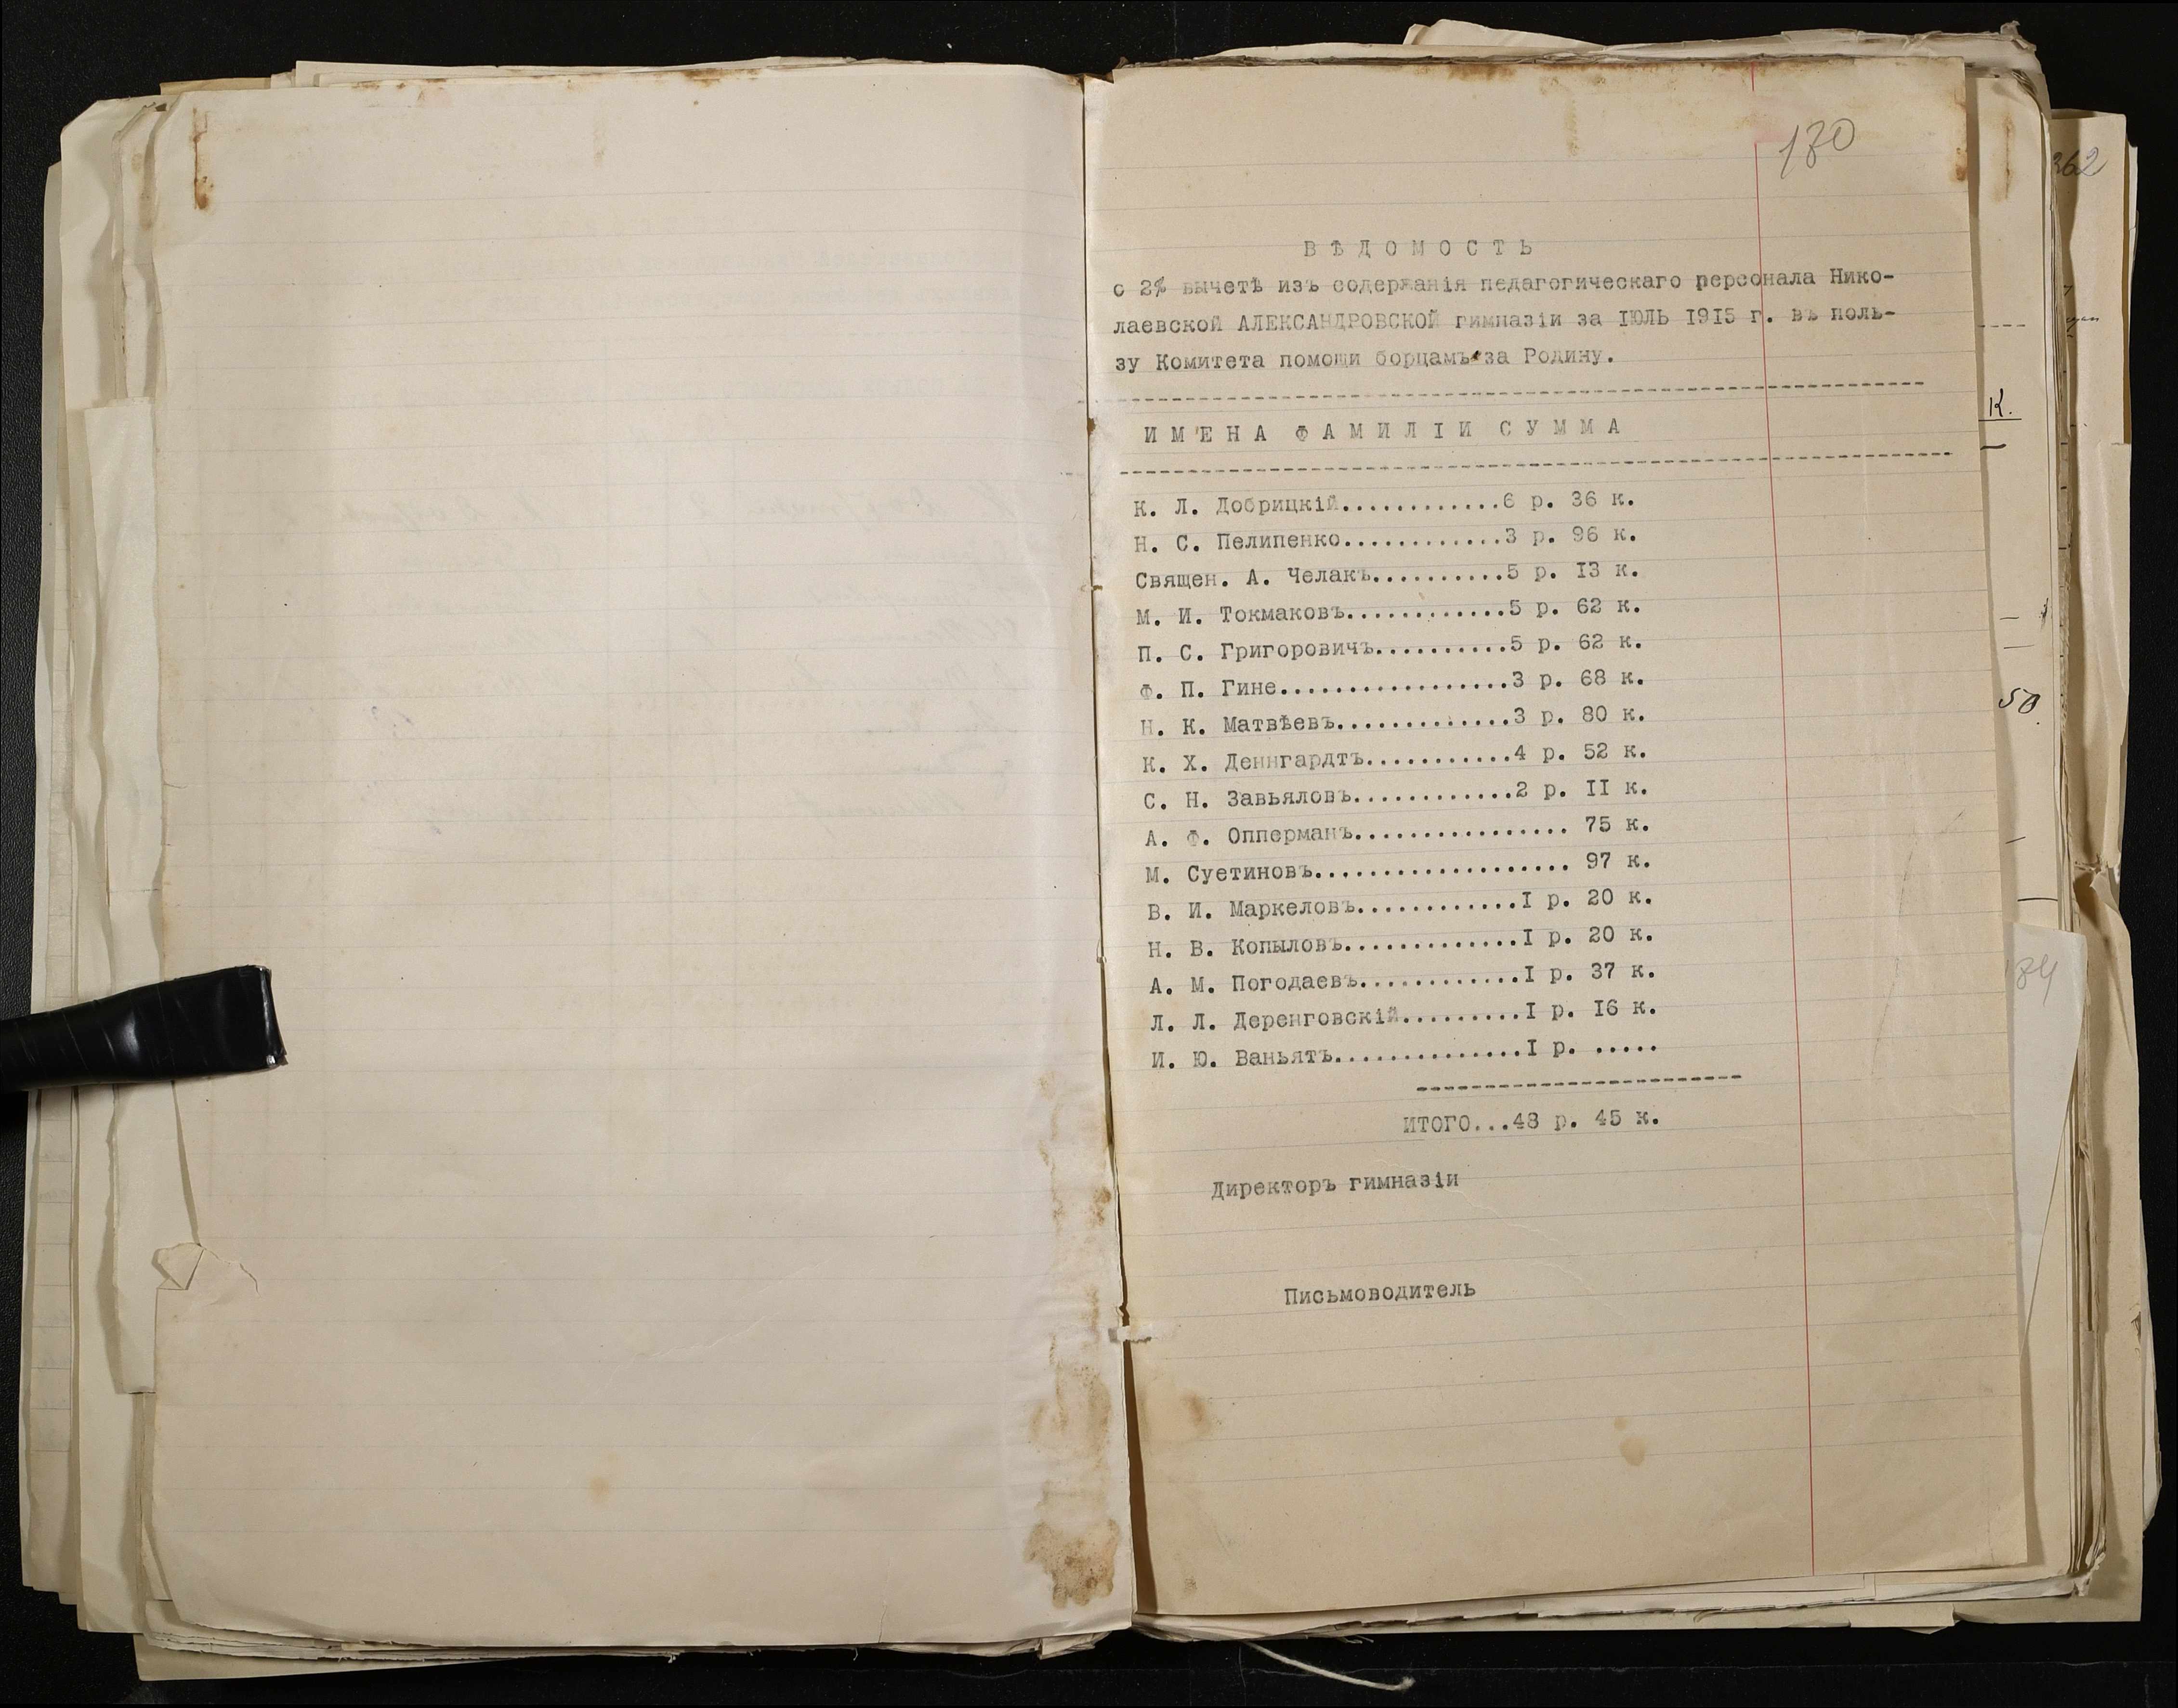 180
362
ВѢДОМОСТЬ
о 2% вычетѣ изъ содержанія педагогическаго персонала Нико-
лаевской АЛЕКСАНДРОВСКОЙ гимназіи за ІЮЛЬ 1915 г. въ поль-
зу Комитета помощи борцамъ за Родину.
ИМЕНА ФАМИЛІИ СУММА
К.
К. Л. Добрицкій............6 р. 36 к.
Н. С. Пелипенко............3 р. 96 к.
Священ. А. Челакъ..........5 р. I3 к.
М. И. Токмаковъ............5 р. 62 к.
П. С. Григоровичъ..........5 р. 62 к.
Ф. П. Гине.................3 р. 68 к.
50
Н. К. Матвѣевъ.............3 р. 80 к.
К. Х. Деннгардтъ...........4 р. 52 к.
С. Н. Завьяловъ............2 р. II к.
А. Ф. Опперманъ................ 75 к.
М. Суетиновъ................... 97 к.
В. И. Маркеловъ............I р. 20 к.
Н. В. Копыловъ.............I р. 20 к.
А. М. Погодаевъ............I р. 37 к.
Л. Л. Деренговскій.........I р. I6 к.
И. Ю. Ваньятъ..............I р. .....
ИТОГО...48 р. 45 к.
Директоръ гимназіи
Письмоводитель